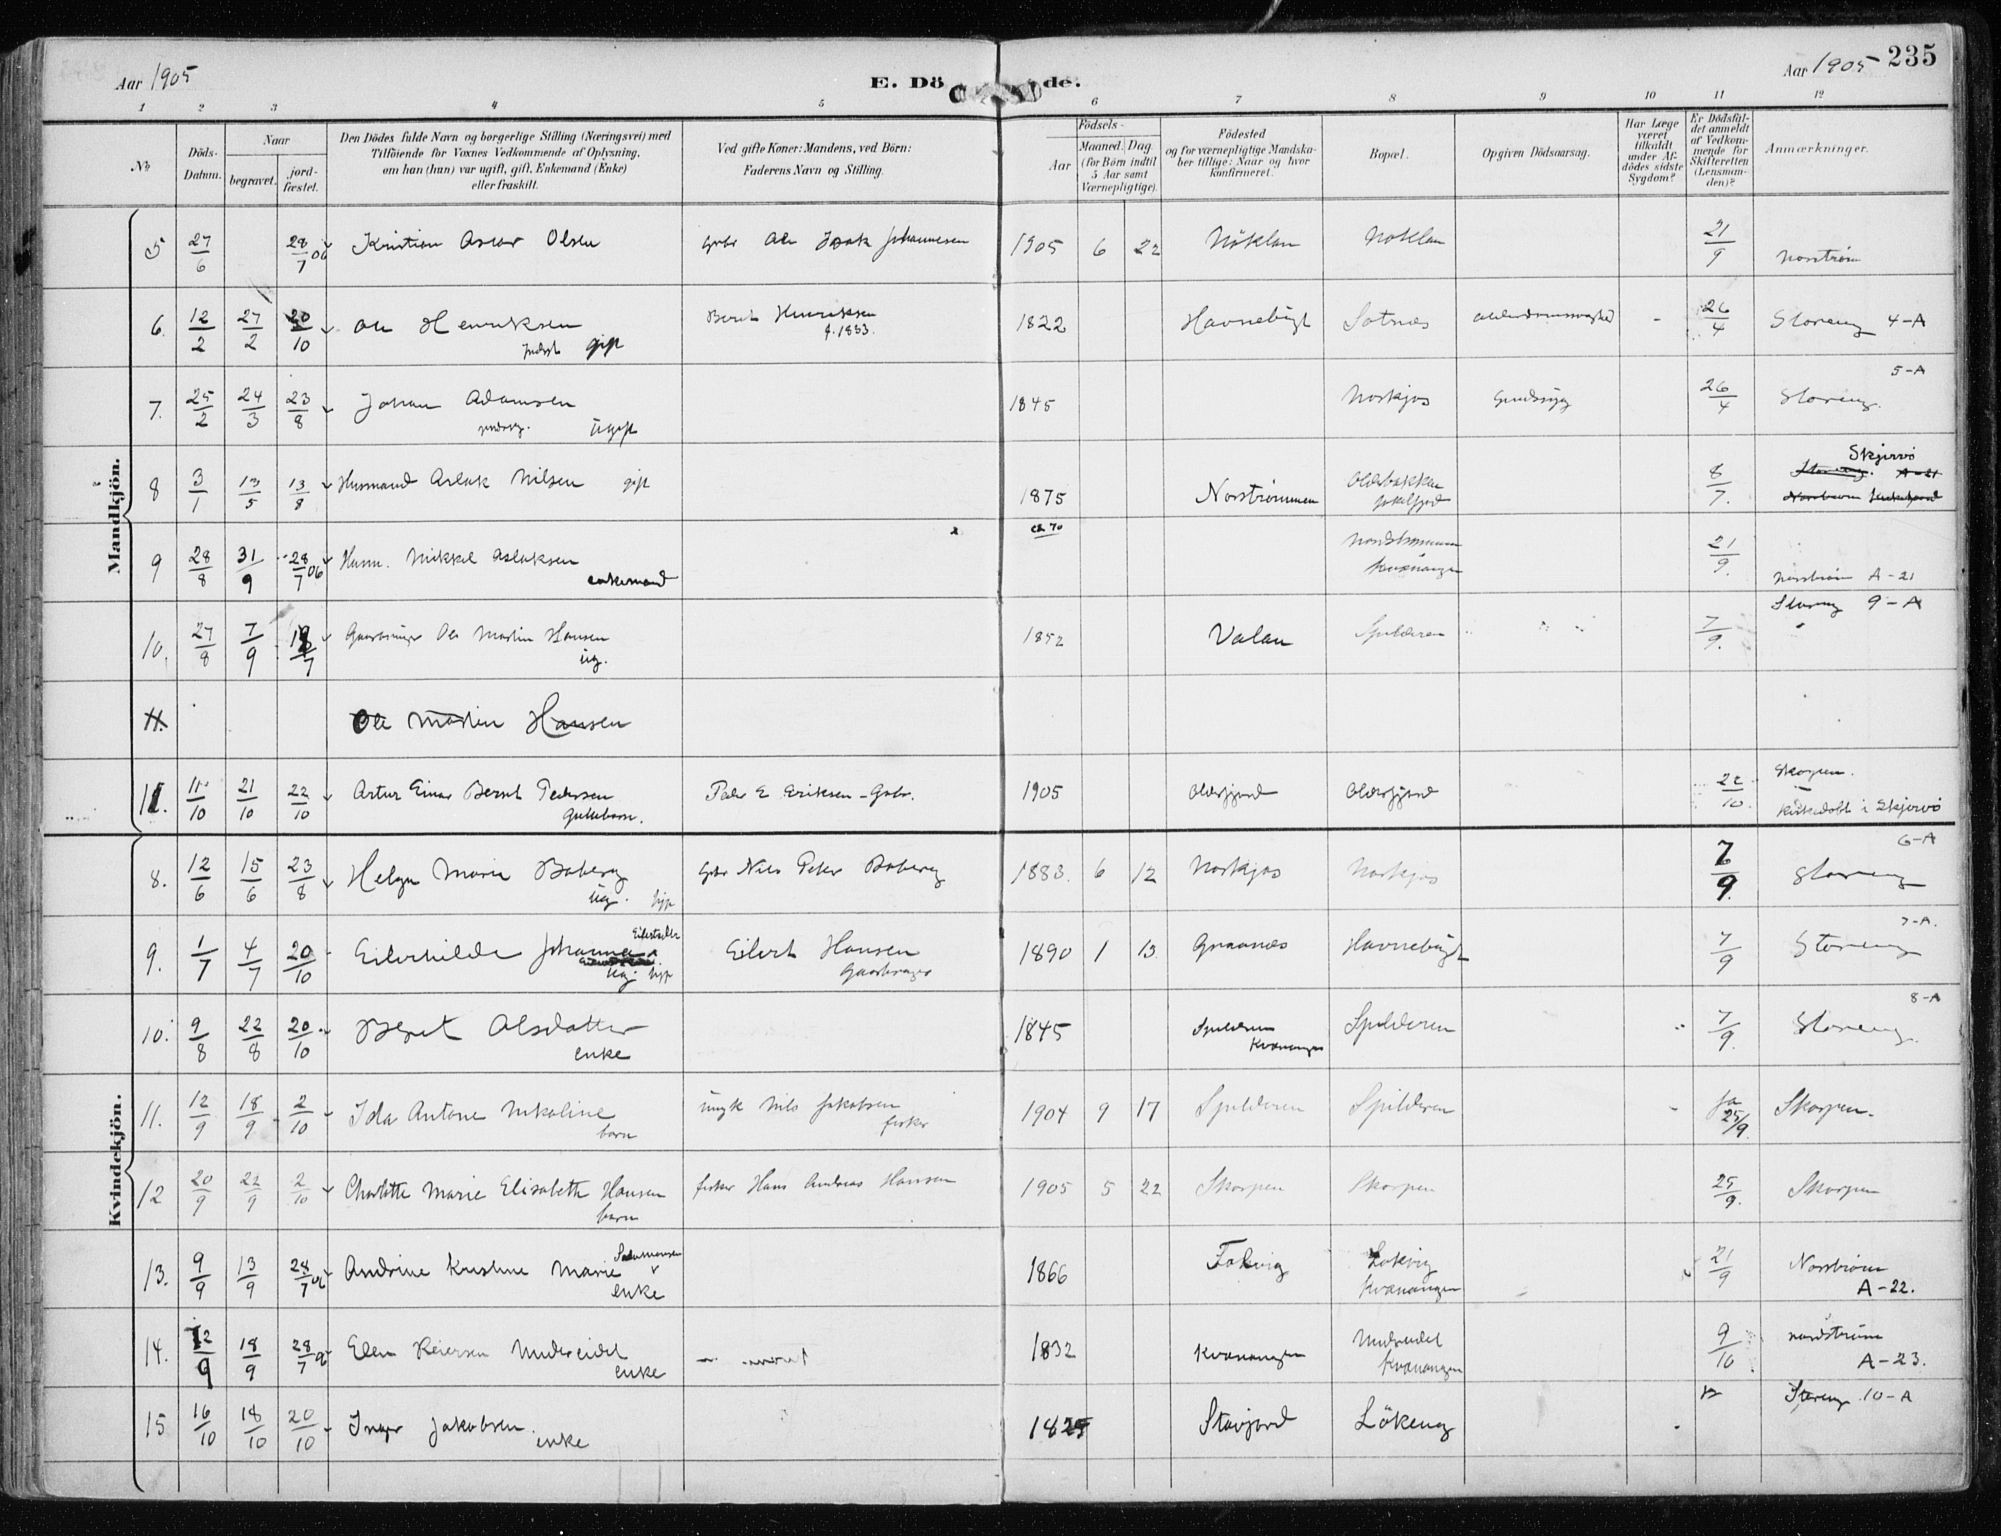 Aar 1905
E. Dö de.
Aar 1905 235
1 2 3 4 5 6 7 8 9 10 11 12
No
Döds-Datum.
Naar
begravet.
jordfæstet.
Den Dödes fulde Navn og borgerlige Stilling (Næringsvei) med
Tilföiende for Voxnes Vedkommende af Oplysning,
om han (hun) var ugift, gift, Enkemand (Enke)
eller fraskilt.
Ved gifte Koner: Mandens, ved Börn:
Faderens Navn og Stilling.
Födsels-
Aar
Maaned. Dag.
(for Börn indtil
5 Aar samt
Værnepligtige).
Födested
og for værnepligtige Mandskaber tillige: Naar og hvor
Konfirmeret.
Bopæl.
Opgiven Dödsaarsag.
Har Læge
været
tilkaldt
under Afdödes sidste
Sygdom?
Er Dödsfaldet anmeldt
af Vedkommende for
Skifteretten
(Lensmanden)?
Anmærkninger.
Mandkjön.
5 27/6 28/7 06 Kristian Olsen Ole Isak Johannesen 1905 6 22 Nöklan Noklan 21/9 Norström
6. 12/2 27/2 20/10 Ole Henriksen gift Berit Henriksen f. 1833. 1822 Havnebügt Sotnæs 26/4 Storeng 4-A
7. 25/2 24/3 23/8 Johan Adamsen Ugift 1845 Norkjos 26/4 Storeng. 5-A
8 3/1 13/5 13/8 Husmand Aslak Nilsen gift 1875 Norströmmen Olderbakken Jøkelfjord 8/7. Skjervö
9 28/8 31/9 28/7 06 Husm. Mikkel Aslaksen enkemand ca 70 Kvænangen 21/9. Norström A-21
10. 27/8 7/9 Ole Martin Hansen ug. 1852 Valan Spilderen 7/9. Storeng 9-A
11. Ole Martin Hansen
11. 11/10 21/10 22/10 Artur Einar Bernt Pedersen Peder E. Eriksen - Gbr. 1905 Olderfjord Olderfjord 22/10 Skorpen.
Skjervö
Kvindekjön.
8. 12/6 15/6 23/8 Helga Marie Boberg ug. Gbr Nils Peter Boberg 1883. 6 12 Norkjos Norkjos 7/9. Storeng 6-A
9. 1/7 4/7 20/10 Johanna ug. Eilert Hansen Gaardbruger 1890 1 13 Graanæs Havnebügt 7/9 Storeng 7-A.
10. 9/8 22/8 20/10 Beret Olsdatter enke 1845 Spilderen Kvænangen Spilderen 7/9. Storeng. 8-A
11. 12/9 18/9 2/10 Ida Antone Nikoline barn ungk Nils Jakobsen fisker 1904 9 17 Spilderen Spilderen Ja 25/9. Skorpen.
12 20/9 22/9 2/10 Charlotte Marie Elisabeth Hansen barn fisker Hans Andreas Hansen 1905 5 22 Skorpen Skorpen 25/9. Skorpen
13. 9/9 13/9 28/7 06 Andrine Kristine Marie Salamonsen enke 1866 Kvænangen 21/9 Norström A-22.
14. 12/9 18/9 28/7 06 Ellen Reiersen Undereidet enke 1832 Kvænangen Undereidet Kvænangen 9/10 Nordström A-23.
15 16/10 18/10 20/10 Inger Jakobsen. enke Lökeng Storeng 10-A